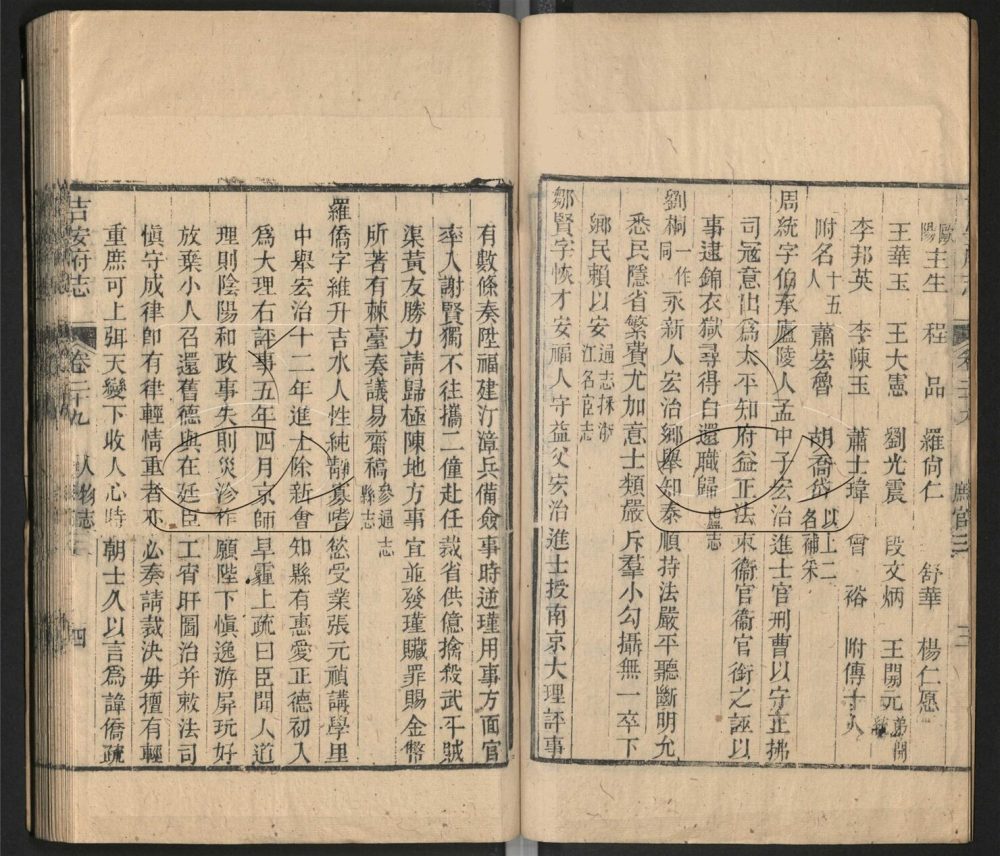 歐陽主生 程品 羅尙仁 舒華 楊仁愿
王華玉 王大憲 劉光震 段文炳 王開元弟開
李邦英 李陳玉 蕭士瑋 曾裕 附傳十人
附名十五人 蕭宏魯 胡喬岱以上二名補采
周統字伯承廬陵人孟中子宏治進士官刑曹以守正拂
司寇意出爲太平知府益正法束衞官衞官銜之誣以
事逮錦衣獄尋得白還職歸廬陵志
劉桐一作同永新人宏治鄉舉知泰順持法嚴平聽斷明允
悉民隱省繁費尤加意士類嚴斥羣小勾攝無一卒下
鄉民賴以安通志採浙江名臣志
鄒賢字恢才安福人守益父宏治進士授南京大理評事
有數條奏陞福建汀漳兵備僉事時逆瑾用事方面官
率入謝賢獨不往攜二僮赴任裁省供億擒殺武平賊
渠黃友勝力請歸極陳地方事宜並發瑾贓罪賜金幣
所著有棘臺奏議易齋稿參通志縣志
羅僑字維升吉水人性純靜寡嗜慾受業張元禎講學里
中舉宏治十二年進士除新會知縣有惠愛正德初入
爲大理右評事五年四月京師旱霾上疏曰臣聞人道
理則陰陽和政事失則災沴作願陛下愼逸游屏玩好
放棄小人召還舊德與在廷臣工宵旰圖治并敕法司
愼守成律卽有律輕情重者亦必奏請裁決毋擅有輕
重庶可上弭天變下收人心時朝士久以言爲諱僑疏
吉安府志 卷二十九 人物志 四